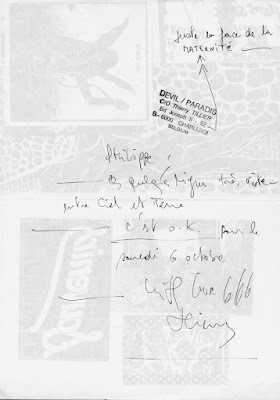 juste en face de la
MATERNITÉ
DEVIL / PARADIS
C/O Thierry TILLIER
Bd Joseph II, 52
B-6000 CHARLEROI
BELGIUM
Philippe,
quelques lignes très vite
entre Ciel et Terre
c'est o.K. pour le
samedi 6 octobre
Love 666
Thierry